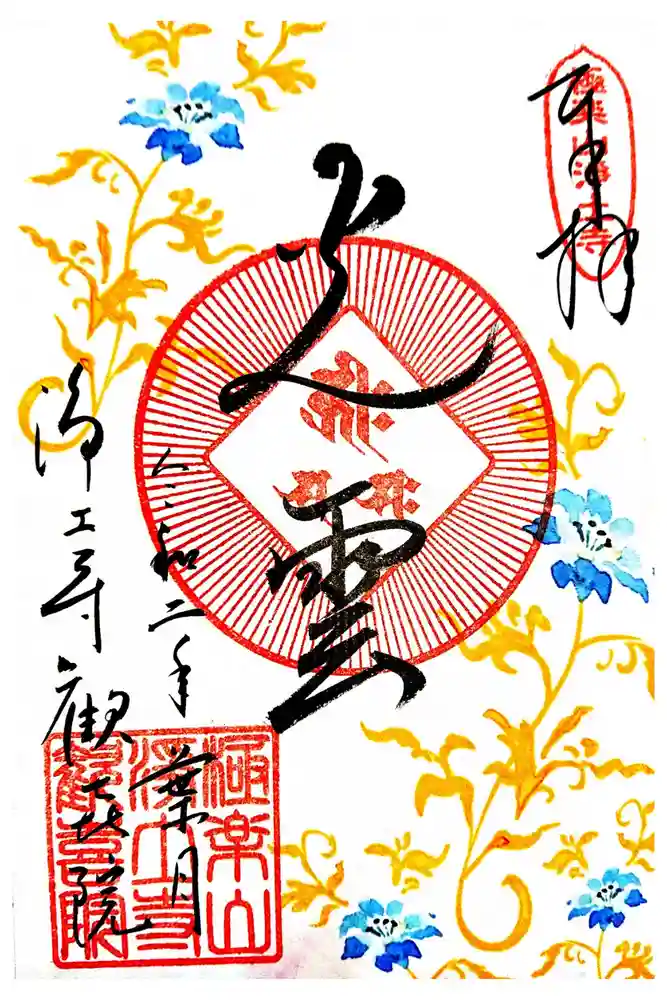 奉拝
極楽山浄土寺
火雲
令和二年
葉月
浄土寺
歓喜院
極楽山
浄土寺
歓喜院